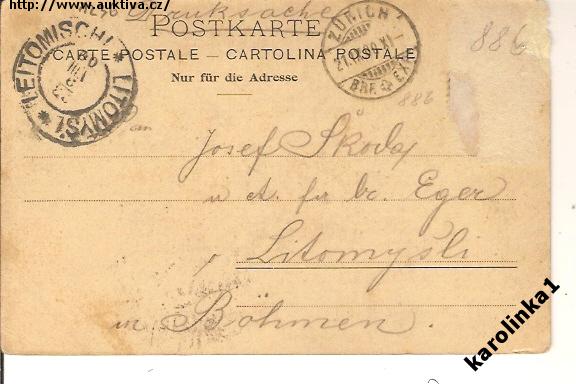 http://www.auktiva.cz/
Drucksache
POSTKARTE
CARTE POSTALE – CARTOLINA POSTALE
Nur für die Adresse
LEITOMISCHL * LITOMYŠL *
ZÜRICH
BRF. EXP.
886
886
an
Josef Škoda
Eger
Litomyšli
in Böhmen.
karolinka1